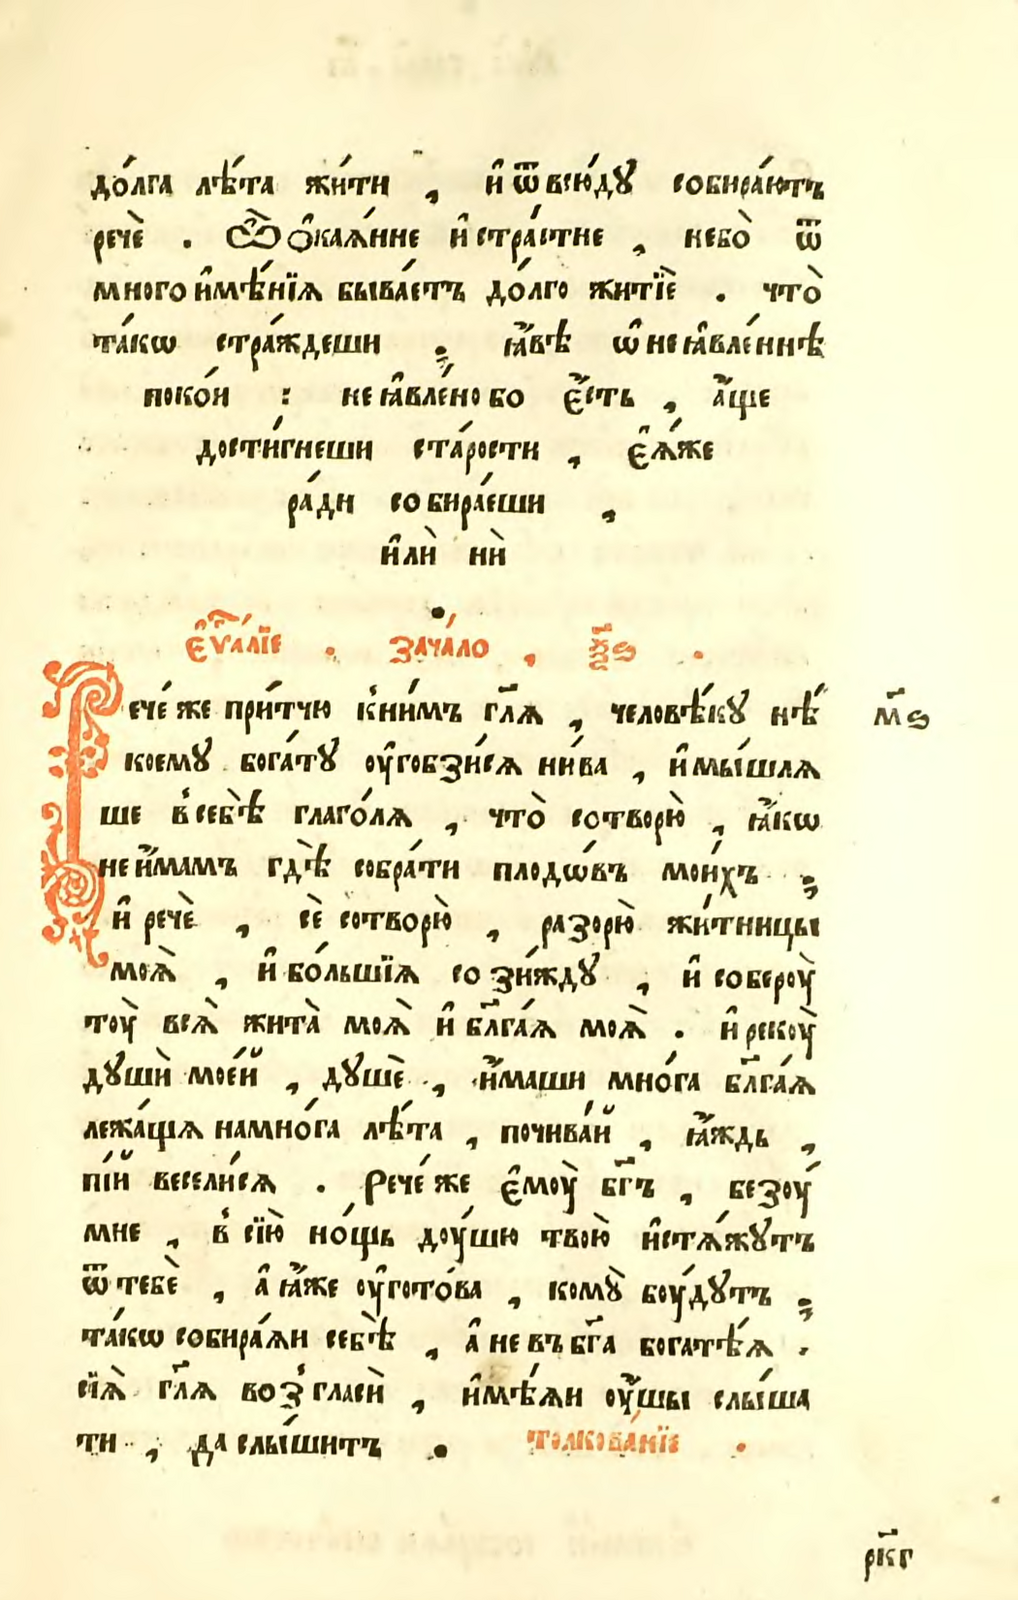 до́лга лѣ́та жи́ти , и҆ ѿ всю́дꙋ собира́ютъ
речѐ . Ѽ ѻ҆кая́нне и҆ стра́стне , небо̀ ѿ
много и҆мѣ́нїѧ быва́етъ до́лго житїѐ . что̀
та́кѡ стра́ждеши ; ꙗ҆́вѣ ѡ҆ не ꙗ҆вле́ннѣ
поко́и : не ꙗ҆вле́но бо є҆́сть , а҆́ще
дости́гнеши ста́рости , є҆ѧ́же
ра́ди собира́еши ,
и҆лѝ нѝ
є҆ѵа́лїе . зача́ло , ѯ҃ѕ .
Рече́ же при́тчю к̾ ни́мъ гл҃ѧ , человѣ́кꙋ нѣ́
коемꙋ бога́тꙋ оу҆гобзи́сѧ ни́ва , и҆ мы́шлѧ
ше в̾ себѣ̀ глаго́лѧ , что̀ сотворю̀ , ꙗ҆́кѡ
не и҆́мамъ гдѣ̀ собра́ти плодѡ́въ мои́хъ ;
и҆ речѐ , сѐ сотворю̀ , разорю̀ жи́тницы
моѧ̀ , и҆ бо́льшїѧ сози́ждꙋ , и҆ собероу̀
тоу̀ всѧ̀ жита̀ моѧ̀ и҆ бл҃га́ѧ моѧ̀ . и҆ рекоу̀
дꙋшѝ мое́й , дꙋшѐ , и҆́маши мно́га бл҃га́ѧ
лежа́щѧ на мно́га лѣ́та , почива́й , ꙗ҆́ждь ,
пі́й весели́сѧ . Рече́ же є҆моу̀ бг҃ъ , безоу́
мне , в̾ сїю̀ но́щь доу́шю твою̀ и҆стѧ́жꙋтъ
ѿ тебѐ , а҆ ꙗ҆́же оу҆гото́ва , комꙋ̀ боу́дꙋтъ ;
та́кѡ собира́ѧи себѣ̀ , а҆ не въ бг҃а богатѣ́ѧ .
сїѧ̀ гл҃ѧ воз̾гласѝ , и҆мѣ́ѧи оу҆́шы слы́ша
ти , да слы́шитъ . толкова́нїе .
м҃ѕ
рк҃г